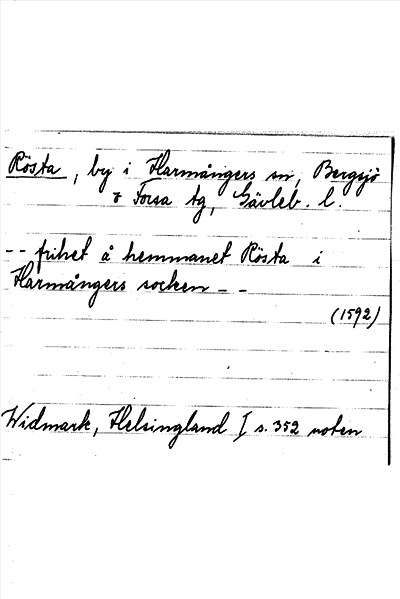 Rösta, by i Harmångers sn, Bergsjö
& Forsa tg, Gävleb. l.
-- frihet å hemmanet Rösta i
Harmångers socken - -
(1592)
Widmark, Helsingland I s. 352 noten